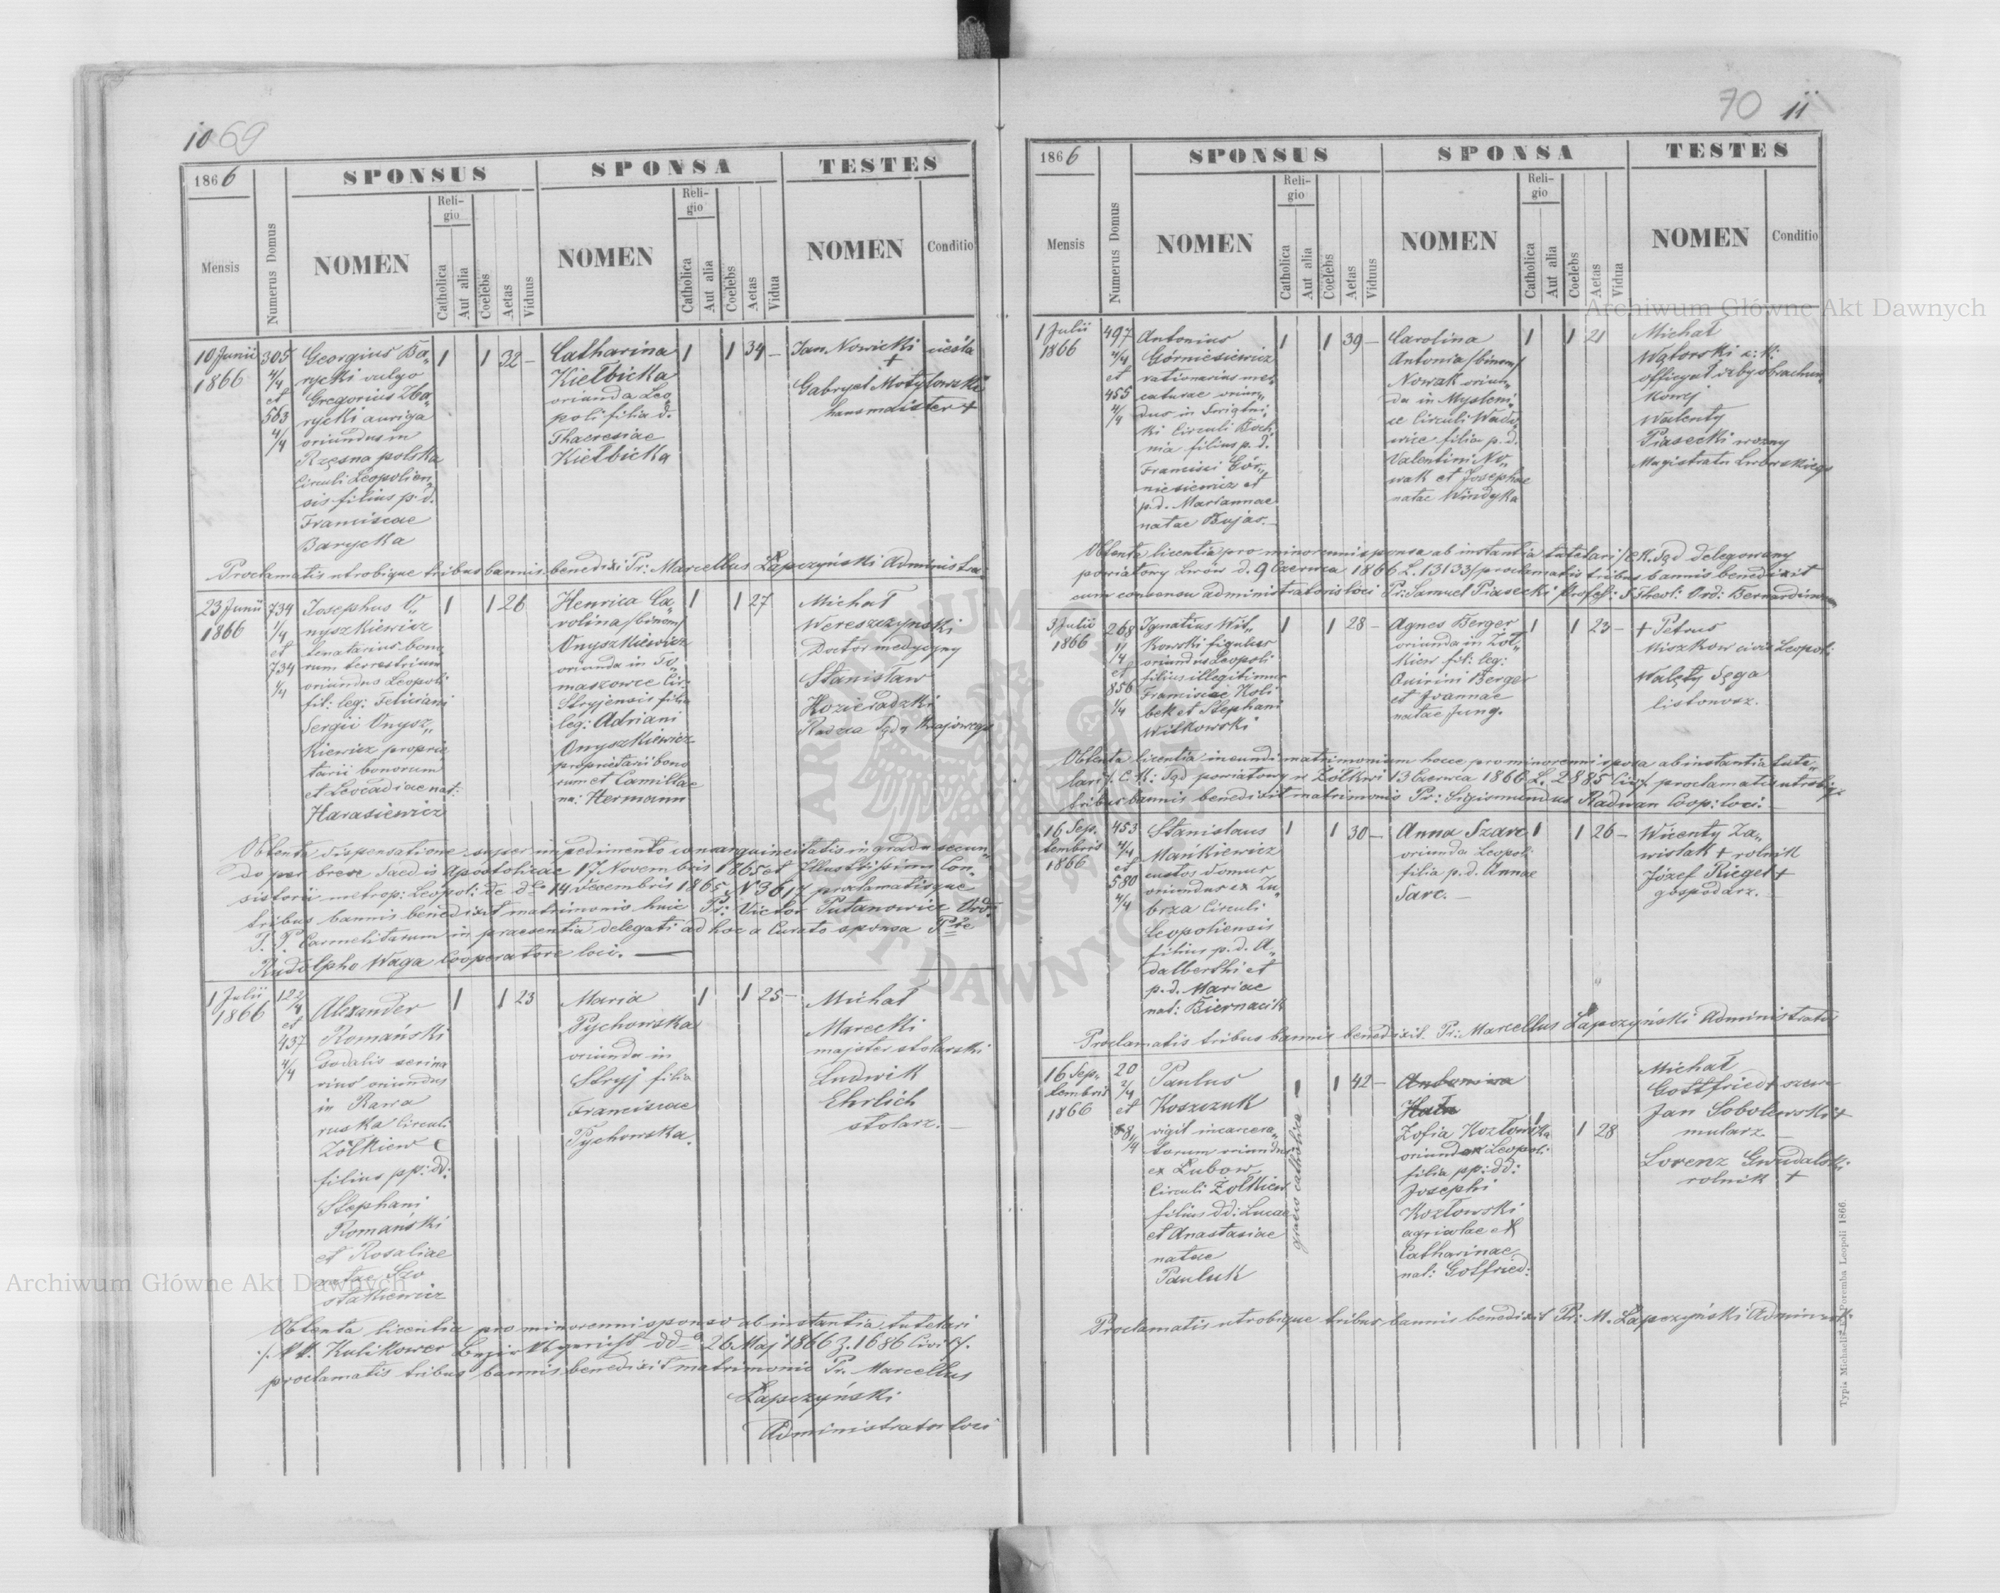 10 69
1866
SPONSUS
SPONSA
TESTES
Mensis
Numerus Domus
NOMEN
Religio
Catholica
Aut alia
Coelebs
Aetas
Viduus
NOMEN
Religio
Catholica
Aut alia
Coelebs
Aetas
Vidua
NOMEN
Conditio
10 Junii
1866
305
4/4
et
563
4/4
Georgius Ba„
rycki vulgo
Gregorius Zba„
rycki auriga
oriundus in
Rzęsna polska
Circuli Leopolien„
sis filius p. d.
Franciscae
Barycka
1
1
32 –
Catharina
Kiełbicka
orianda Leo
poli filia d.
Thaeresiae
Kiełbicka
1
1
34 –
Jan Nowicki cieśla
+
Gabryel Motylowski
hausmaister +
Proclamatis utrobique tribus bannis benedixi Pr: Marcellus Łapczyński Administra„
23 Junii
1866
734
1/4
et
734
1/4
Josephus O„
nyszkiewicz
tenatarius bono
rum terrestrium
oriundus Leopoli
fil: leg: Feliciani
Sergii Onysz„
kiewicz proprie
tarii bonorum
et Leocadiae nat:
Harasiewicz
1
1
26
Henrica Ca„
rolina /binom/
Onyszkiewicz
oriunda in To„
maszowce Cir:
Stryjensis filia
leg: Adriani
Onyszkiewicz
proprietarii bono
rum et Camillae
na: Hermann
1
1
27
Michał
Wereszczyński
Doctor medycyny
Stanisław
Kozieradzki
Radzca Sądu Krajowego
Obtenta dispensatione super impedimento consanguineitatis in gradu secun„
do per breve Saedis Apostolicae 17 Novembris 1865 et Illustrissimi Con„
sistorii metrop: Leopol: de dto 14 Decembris 1865 No 3617 proclamatisque
tribus bannis benedixit matrimonio huic Pr: Victor Putanowicz Ord:
P. P. Carmelitarum in praesentia delegati ad hoc a Curato sponsa Ptre
Rudolpho Waga Cooperatore loci.
1 Julii
1866
122
4/4
et
437
4/4
Alexander
Romański
sodalis scrina
rius oriundus
in Rawa
ruska Circuli
Żółkiew
filius pp: dd:
Stephani
Romański
et Rosaliae
natae Szo
stakiewicz
1
1
23
Maria
Pychowska
oriunda in
Stryj filia
Franciscae
Pychowska.
1
1
25 –
Michał
Marecki
majster stolarski
Ludwik
Ehrlich
stolarz. –
Obtenta licentia pro minorenni sponso ab instantia tutelari
./. K. K. Kulikower Bezirksgericht ddo 26 Maj 1866 Z. 1686 Civ: /.
proclamatis tribus bannis benedixit matrimonio Pr. Marcellus
Łapczyński
Administrator loci
70 11
1866
SPONSUS
SPONSA
TESTES
Mensis
Numerus Domus
NOMEN
Religio
Catholica
Aut alia
Coelebs
Aetas
Viduus
NOMEN
Religio
Catholica
Aut alia
Coelebs
Aetas
Vidua
NOMEN
Conditio
1 Julii
1866
497
4/4
et
455
4/4
Antonius
Górniesiewicz
rationarius mer„
caturae oriun„
dus in Swiątni„
ki Circuli Boch„
nia filius p. d.
Francisci Gór„
niesiewicz et
p. d. Mariannae
natae Bujas. –
1
1
39 –
Carolina
Antonia /binom/
Nowak oriun„
da in Myśleni„
ce Circuli Wado
wice filia p. d.
Valentini No„
wak et Josephae
natae Windyka
1
1
21
Michał
Wątorski c: k:
officyał izby obrachun„
kowej
Walenty
Piasecki woźny
Magistratu Lwowskiego
Obtenta licentia pro minorenni sponsa ab instantia tutelari /c. K. Sąd delegowany
powiatowy Lwów d. 9 Czerwca 1866 L. 13133/ proclamatis tribus bannis benedixit
cum consensu administratoris loci Pr: Samuel Piasecki Profess: S. Theol: Ord: Bernardinorum
3 Julii
1866
268
1/4
et
856
1/4
Ignatius Wit„
kowski figulus
oriundus Leopoli
filius illegitimus
Franciscae Holi
bek et Stephani
Witkowski
1
1
28 –
Agnes Berger
oriunda in Żół„
kiew fil: leg:
Quirini Berger
et Joannae
natae Jung.
1
1
23 –
+ Petrus
Kiszkow civis Leopol:
Walęty Sęga
listonosz.
Obtenta licentia ineundi matrimonium hocce pro minorenni sponsa ab instantia tute„
lari /. C. K: Sąd powiatowy w Żółkwi 13 Czerwca 1866 L. 2885 Civ/. proclamatis utrobique
tribus bannis benedixit matrimonio Pr: Sigismundus Radwan Coop: loci. –
16 Sep„
tembris
1866
453
4/4
et
580
4/4
Stanislaus
Mańkiewicz
custos domus
oriundus ex Zu„
brza Circuli
Leopoliensis
filius p. d. A„
dalberthi et
p. d. Mariae
nat: Biernacik
1
1
30 –
Anna Szarc
oriunda Leopoli
filia p. d. Annae
Sarc. –
1
1
26 –
Wicenty Za„
wislak + rolnik
Józef Rieger +
gospodarz. –
Proclamatis tribus bannis benedixit Pr: Marcellus Łapczyński Administrator
16 Sep„
tembris
1866
20
2/4
et
8
1/4
Paulus
Koszczuk
vigil incarcera„
torum oriundus
ex Lubow
Circuli Żółkiew
filius dd: Lucae
et Anastasiae
natae
Pauluk
graeco catholica – 1
1
42 –
Antonina
Zofia Kozłowska
orianda Leopol:
filia pp: dd:
Josephi
Kozłowski
agricolae et
Catharinae
nat: Gotfried:
1
1
28
Michał
Gottfried + szewc
Jan Sobolewski +
mularz. –
Lorenz Gwudalski
rolnik +
Proclamatis utrobique tribus bannis benedixit Pr: M. Łapczyński Administ:
Typis Michaelis F. Poremba Leopoli 1866.
Archiwum Główne Akt Dawnych
Archiwum Główne Akt Dawnych
ARCHIWUM GŁÓWNE AKT DAWNYCH